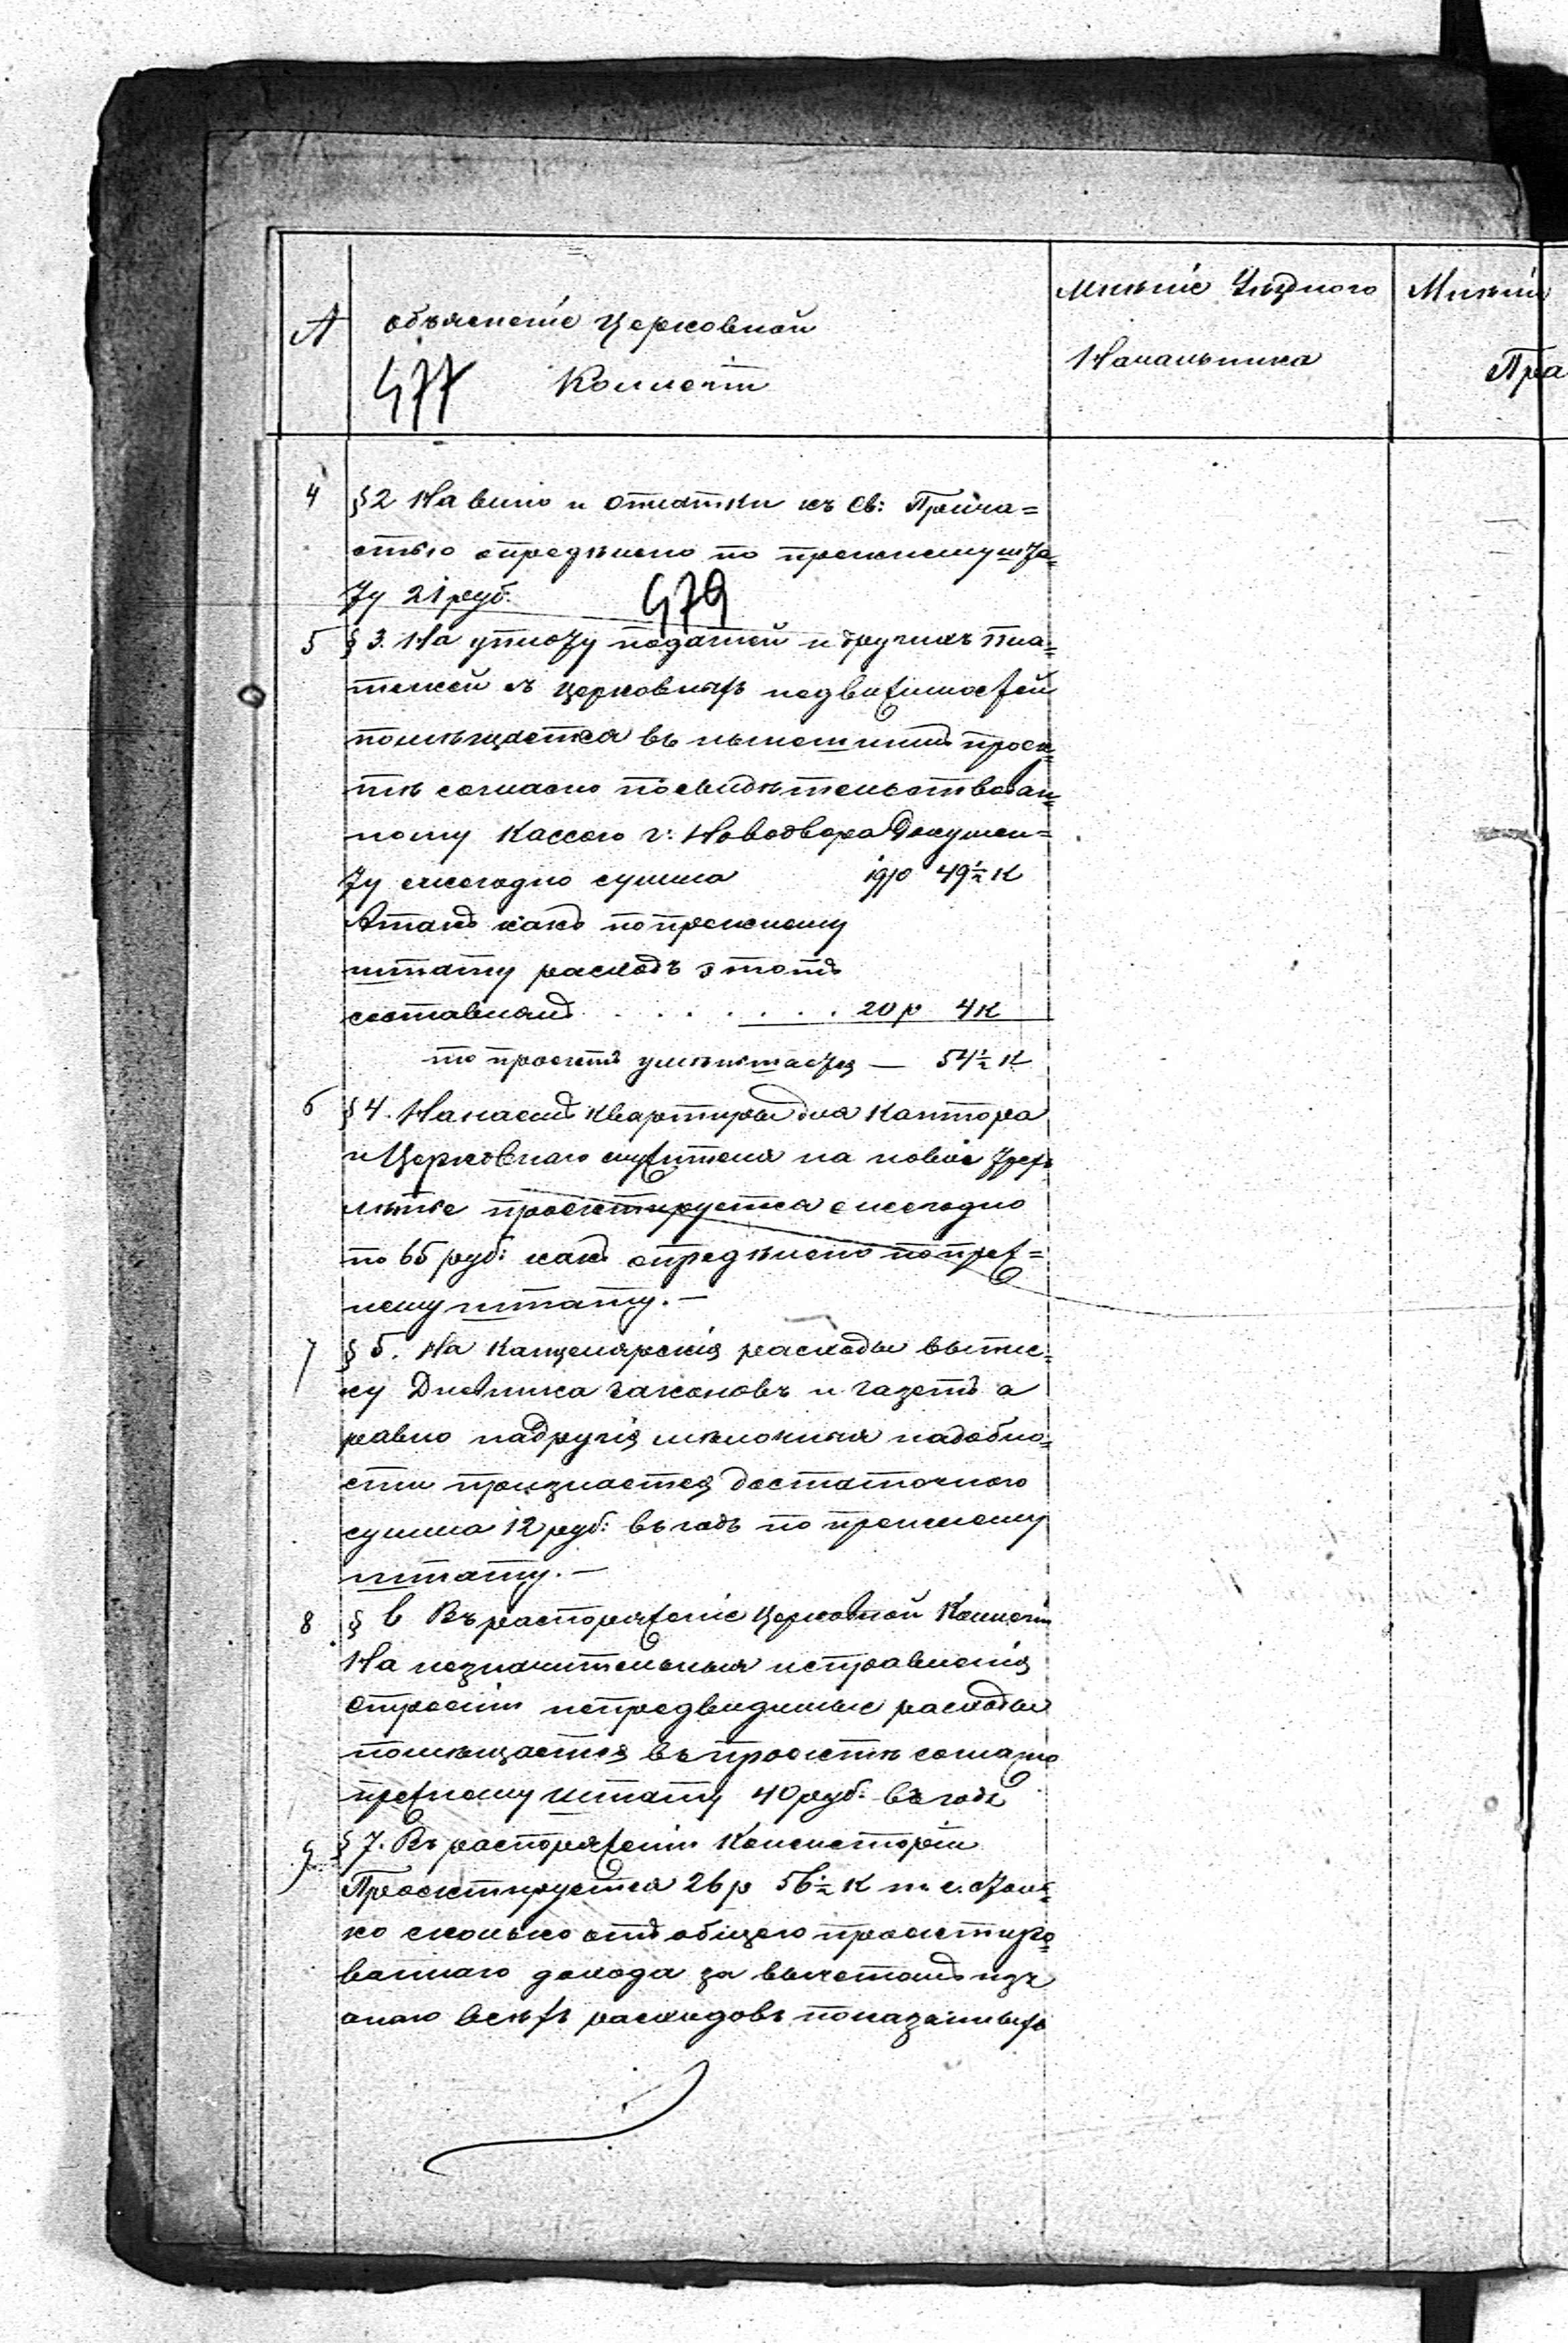 А
объясненіе Церковной
477 Коллегіи
Мнѣніе Уѣзднаго
Начальника
Мнѣніе
Пра
4 § 2 На вино и Оплатки къ Св: Прича=
стью опредѣлено по прежнему шта=
ту 21 руб.
479
5 § 3. На уплату податей и другихъ пла=
тежей съ церковныхъ недвижимостей
помѣщается въ нынешнимъ проек=
тѣ согласно посвидѣтельствован=
ному Кассою г: Новодвора Докумен=
ту ежегодно сумма 19 р 49½ К
Атакъ какъ по прежнему
штату расходъ этотъ
составлялъ . . . . . . . 20 р 4 к
то проектъ уменьшается — 54½ К
6 § 4. На наемъ квартиры для Кантора
и Церковнаго служителя на новое трех
лѣтіе проектируется ежегодно
по 65 руб: какъ опредѣлено по преж=
нему штату. —
7 § 5. На Канцелярскія расходы выпис=
ку Дневника законовъ и газетъ а
равно на другія мѣлочныя надобно=
сти признается достаточною
сумма 12 руб: въ годъ по прежнему
штату. —
8 § 6 Въ распоряженіе Церковной Коллегіи
На незначительныя исправленія
строеній непредвидимые расходы
помѣщается въ проектѣ согласно
прежнему штату 40 руб: въ годъ
9 § 7. Въ распоряженіи Консисторіи
Проектируется 26 р 56½ К т. е. столь=
ко сколько отъ общаго проектиро=
ваннаго дохода за вычетомъ изъ
онаго всѣхъ расходовъ показанныхъ